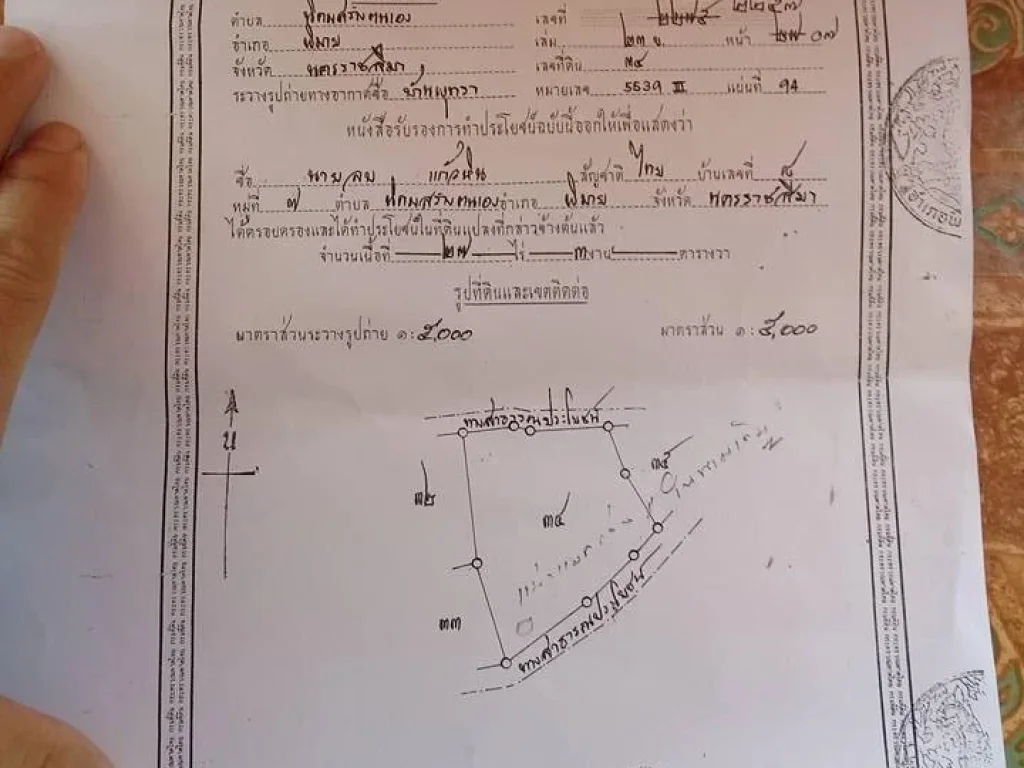 ตำบล นิคมสร้างตนเอง เลขที่ ๒๒๕๗
อำเภอ พิมาย เล่ม ๒๓ ข. หน้า ๐๗
จังหวัด นครราชสีมา เลขที่ดิน ๓๔
ระวางรูปถ่ายทางอากาศชื่อ บ้านพุทรา หมายเลข 5539 III แผ่นที่ 94
หนังสือรับรองการทำประโยชน์ฉบับนี้ออกให้เพื่อแสดงว่า
ชื่อ นาย ลบ แก้วหิน สัญชาติ ไทย บ้านเลขที่ ๕
หมู่ที่ ๗ ตำบล นิคมสร้างตนเอง อำเภอ พิมาย จังหวัด นครราชสีมา
ได้ครอบครองและได้ทำประโยชน์ในที่ดินแปลงที่กล่าวข้างต้นแล้ว
จำนวนเนื้อที่ ๒๗ ไร่ ๓ งาน ตารางวา
รูปที่ดินและเขตติดต่อ
มาตราส่วนระวางรูปถ่าย ๑:๕,๐๐๐ มาตราส่วน ๑:๕,๐๐๐
น
ทางสาธารณประโยชน์
๓๒
๓๕
๓๔
๓๓
ทางสาธารณประโยชน์